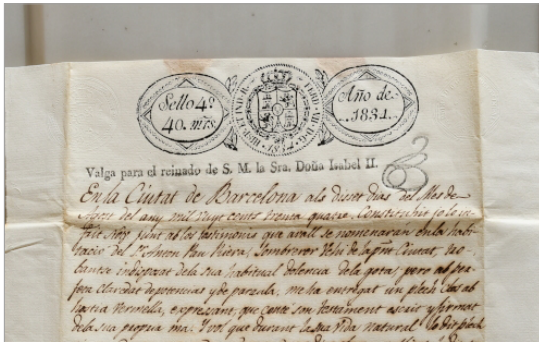 Sello 4º
40. mrs.
HISP. ET IND. R. FERD. VII. D. G.
1834
Año de
1834.
Valga para el reinado de S. M. la Sra. Doña Isabel II.
En la Ciutat de Barcelona als diset dias del Mes de
del any mil vuyt cents trenta quatre. Constituhit jo lo in-
frit Noy junt ab los testimonis que avall se nomenaran en la habi-
tació del Sr. Anton Pau Riera, Sombrerer Vehi de la pnt Ciutat, tro-
bantse indisposat de la sua habitual dolencia de la gota, pero ab per-
feta claredat de potencias y de paraula, me ha entregat un plech clos ab
hostia Vermella, expressant, que conté son testament escrit y firmat
de la sua propria ma. Y vol que durant la sua Vida natural lo dit plech